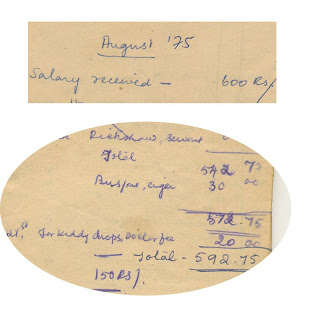 August '75
Salary received — 600 Rs/
Rickshaw, servant
Total 542 75
Busfare, cigar 30 00
572.75
for kiddy drops, Doctor fee 20 00
— Total - 592.75
150 RS/.